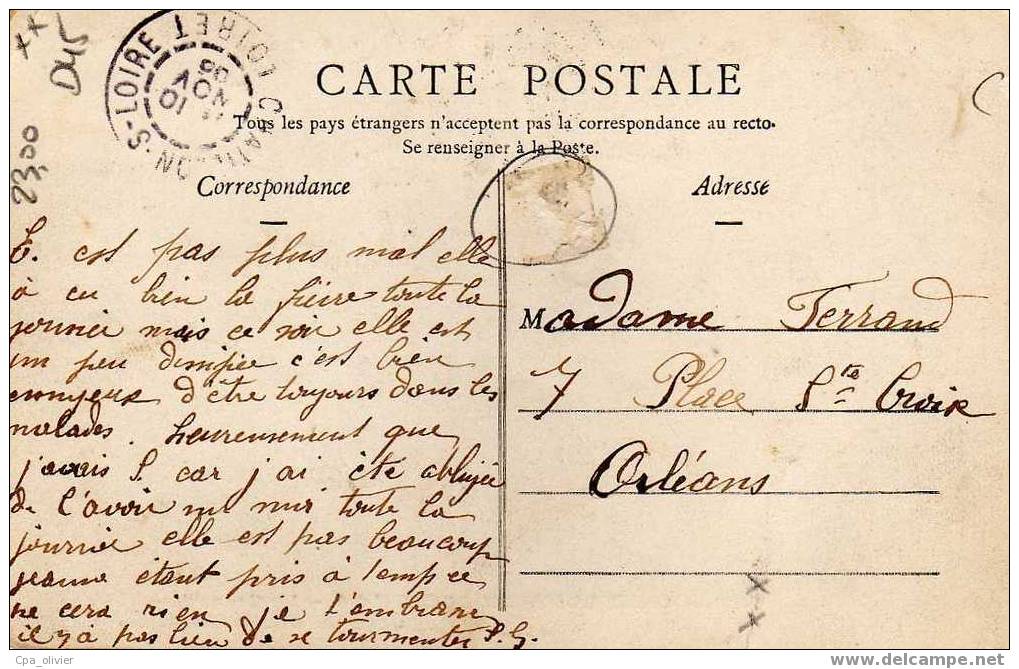 D45
23,00
LOIRET
CHATILLON-S-LOIRE
10
NOV
06
CARTE POSTALE
Tous les pays étrangers n'acceptent pas la correspondance au recto.
Se renseigner à la Poste.
Correspondance
Adresse
E. est pas plus mal elle
à eu bien la fièvre toute la
journée mais ce soir elle est
un peu dissipée c'est bien
ennyeux d'être toujours dans les
malades. heureusement que
j'avais S. car j'ai été obligée
de l'avoir toute la
journée elle est pas beaucoup
jeanne étant pris à temp ce
ne cera rien je t'embrasse
il y a pas lieu de se tourmenter S.G.
Madame Ferrand
7 Place Ste Croix
Orléans
Cpa_olivier
www.delcampe.net